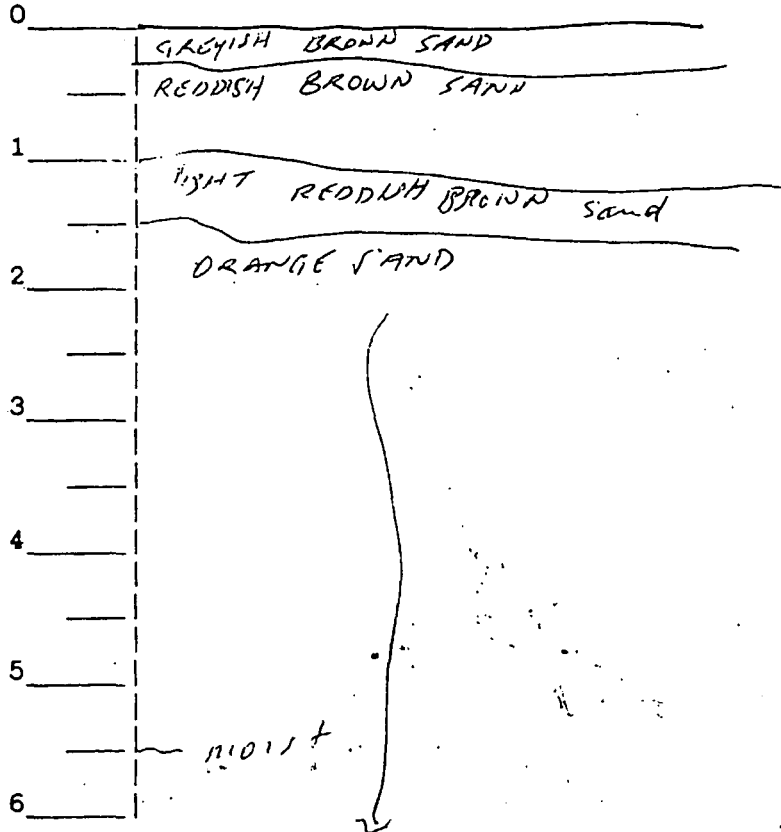 0
GREYISH BROWN SAND
REDDISH BROWN SAND
1
LIGHT REDDISH BROWN Sand
ORANGE SAND
2
3
4
5
moist
6